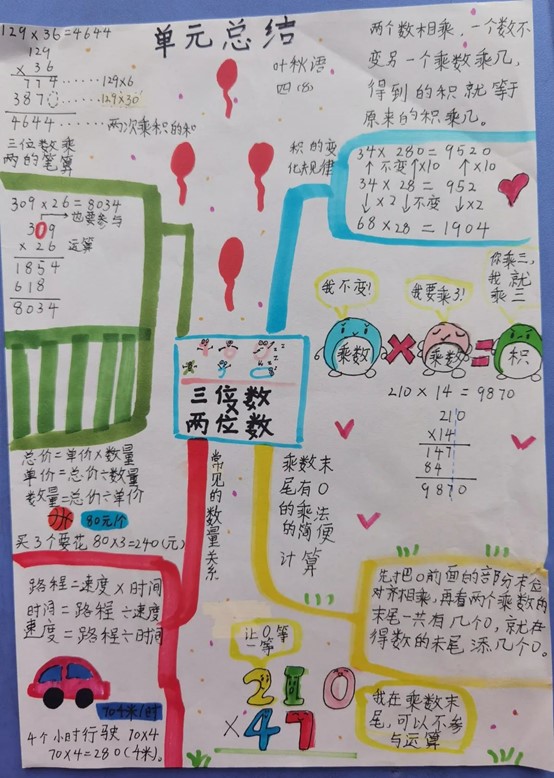 单元总结
叶秋语
四(8)
129×36=4644
129
× 36
774……129×6
387……129×30
4644……两次乘积的和
三位数乘
两的笔算
309×26=8034
也要参与
运算
309
×26
1854
618
8034
两个数相乘，一个数不
变另一个乘数乘几，
得到的积就等于
原来的积乘几。
积的变
化规律
34×280=9520
↑不变↑×10 ↑×10
34×28=952
↓×2↓不变 ↓×2
68×28=1904
我不变!
我要乘3!
你乘三,
我就
乘三
乘数×乘数=积
三位数
两位数
210×14=9870
210
×14
147
84
9870
总价=单价×数量
单价=总价÷数量
数量=总价÷单价
80元/个
买3个要花 80×3=240(元)
常见的数量关系
路程=速度×时间
时间=路程÷速度
速度=路程÷时间
70千米/时
4个小时行驶 70×4
70×4=280(千米)。
乘数末
尾有0
的乘法
的简便
计算
先把0前面的部分末位
对齐相乘,再看两个乘数的
末尾一共有几个0,就在
得数的末尾添几个0。
让0等
一等
210
×47
我在乘数末
尾,可以不参
与运算